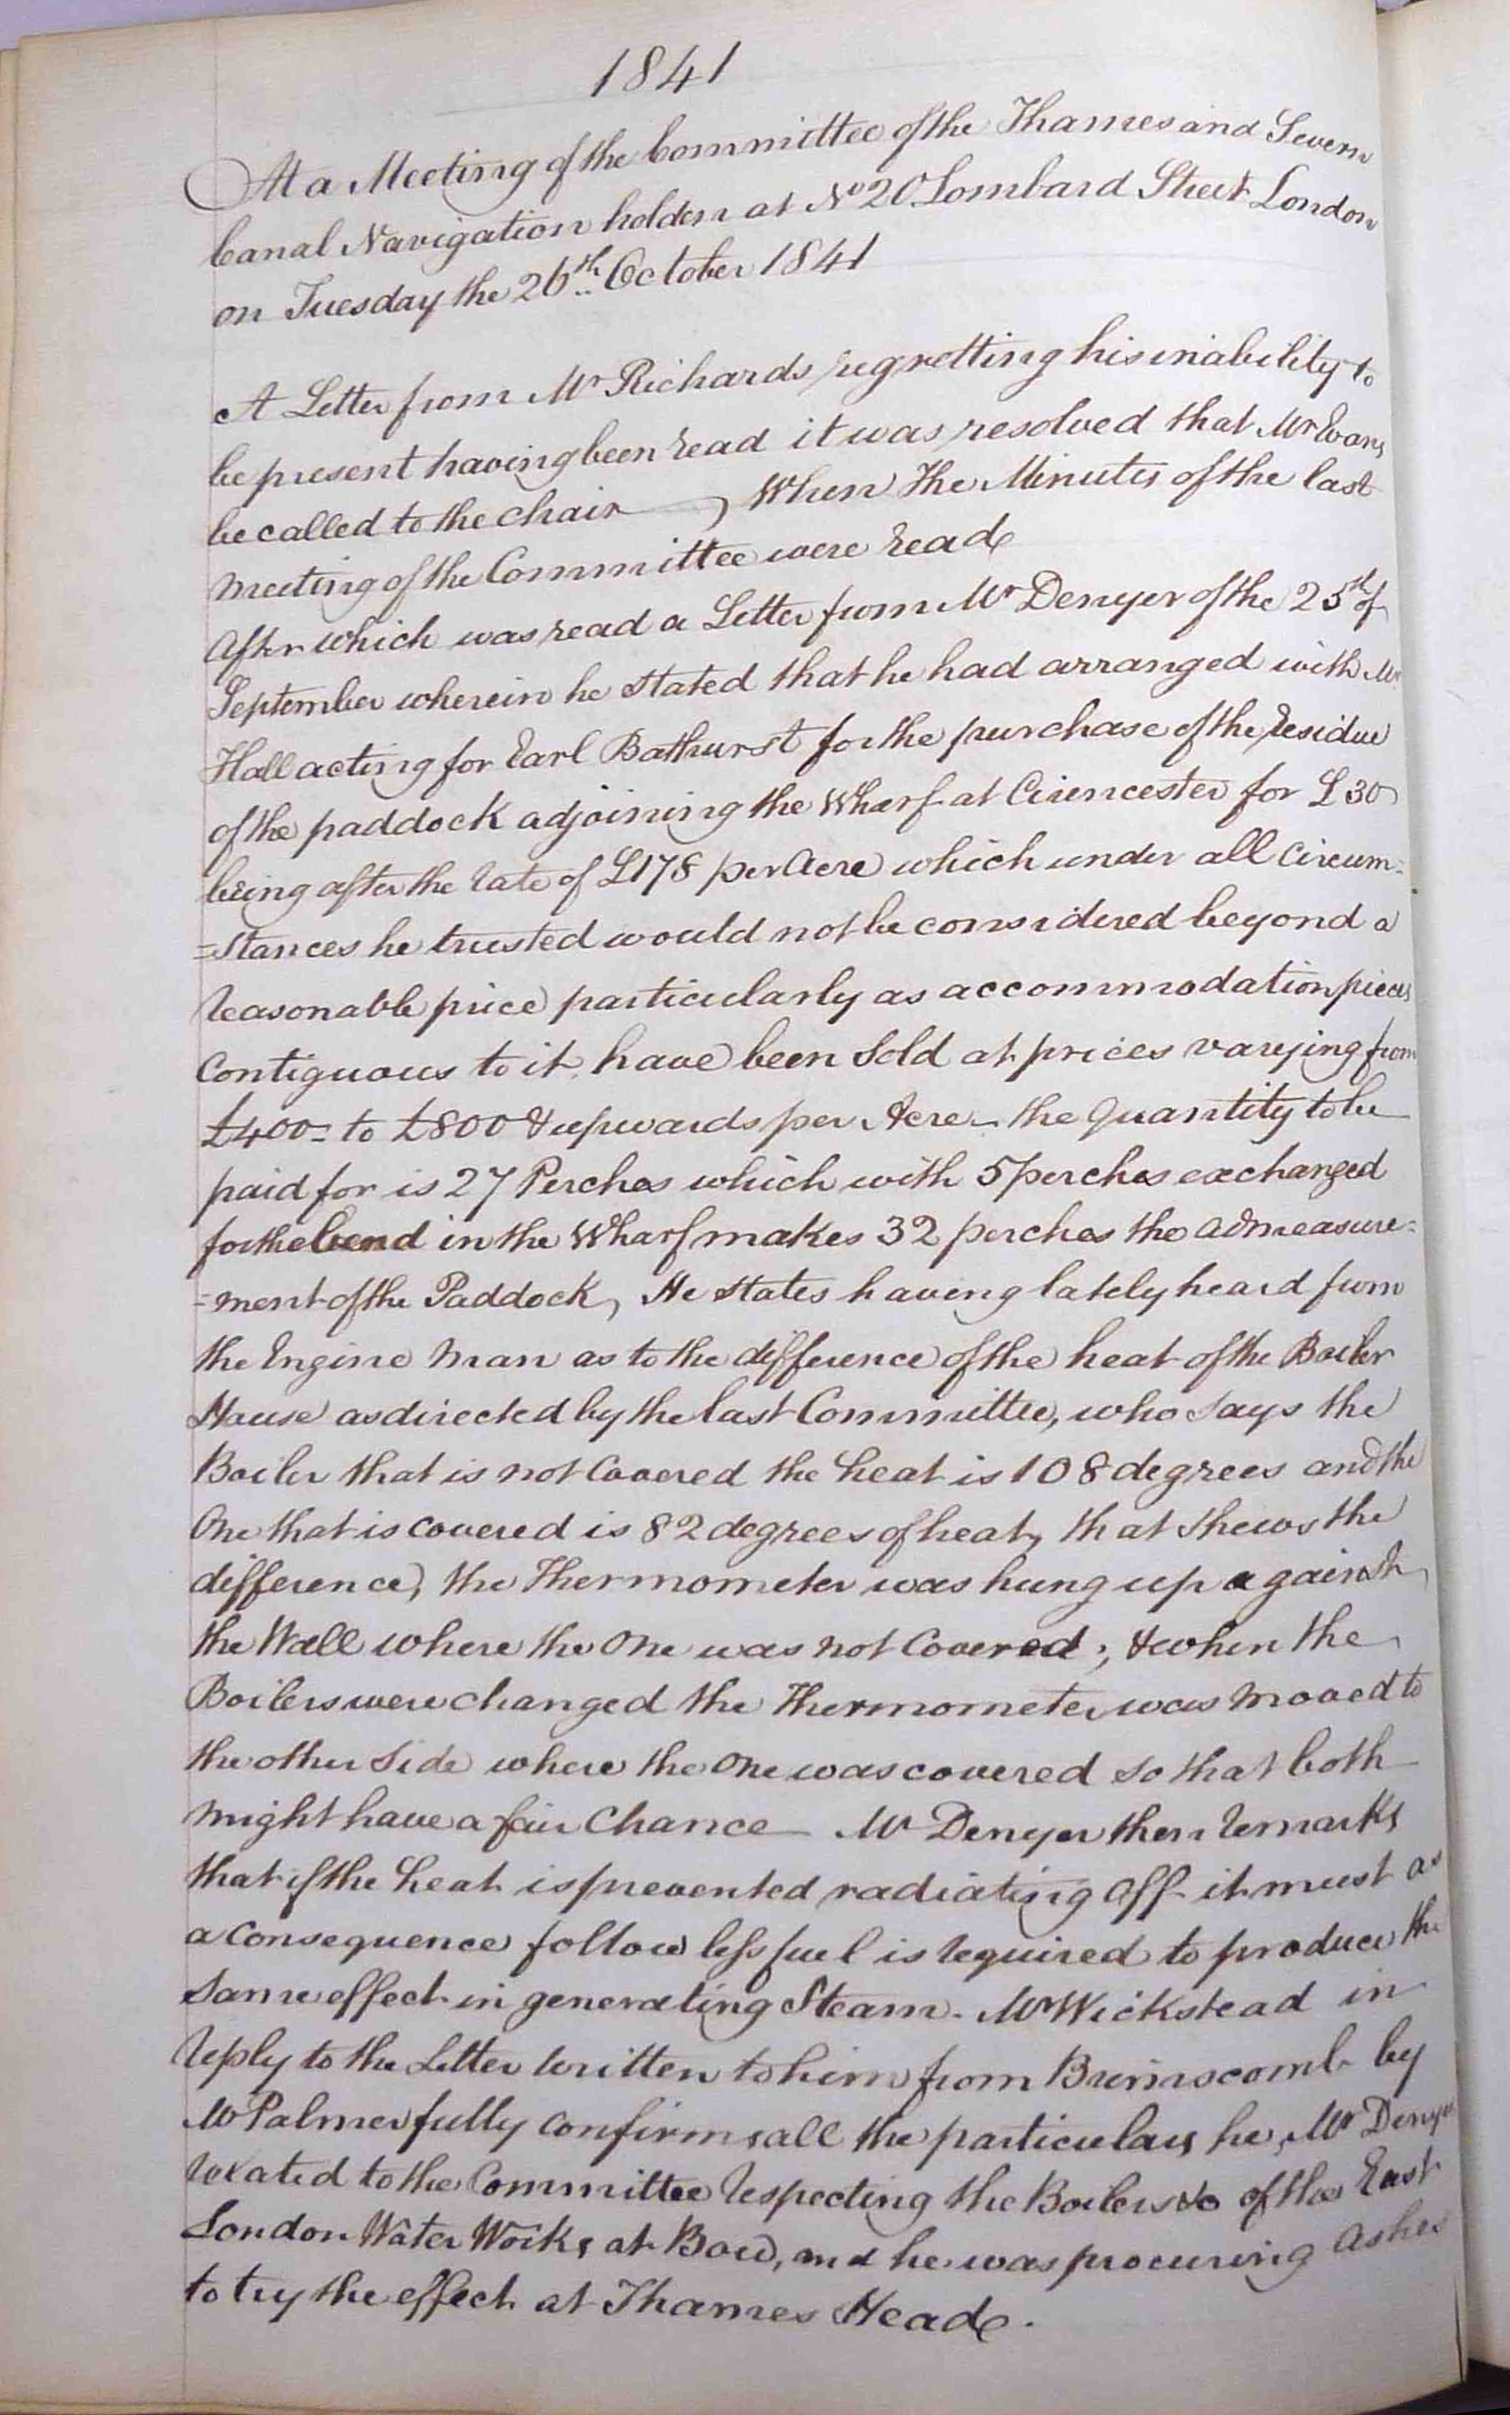 1841
At a Meeting of the Committee of the Thames and Severn
Canal Navigation holden at No 20 Lombard Street London
on Tuesday the 26th October 1841
A Letter from Mr Richards regretting his inability to
be present having been read it was resolved that Mr Evans
be called to the chair — , When The Minutes of the last
meeting of the Committee were read
After which was read a Letter from Mr Denyer of the 25th of
September wherein he stated that he had arranged with Mr
Hall acting for Earl Bathurst for the purchase of the residue
of the paddock adjoining the Wharf at Cirencester for £30
being after the rate of £178 per Acre which under all Circum=
=stances he trusted would not be considered beyond a
reasonable price particularly as accommodation pieces
Contiguous to it have been Sold at prices varying from
£400= to £800 & upwards per Acre – the Quantity to be
paid for is 27 Perches which with 5 perches exchanged
for the bend in the Wharf makes 32 perches the admeasure=
=ment of the Paddock, He states having lately heard from
the Engine Man as to the difference of the heat of the Boiler
House as directed by the last Committee, who says the
Boiler that is not Covered the heat is 108 degrees and the
One that is covered is 82 degrees of heat, that shews the
difference, the Thermometer was hung up against
the Wall where the One was not Covered; & when the
Boilers were changed the Thermometer was moved to
the other Side where the One was covered so that both
might have a fair Chance — Mr Denyer then remarks
that if the heat is prevented radiating off it must as
a consequence follow less fuel is required to produce the
same effect in generating Steam. Mr Wickstead in
reply to the Letter written to him from Brimscomb by
Mr Palmer fully confirms all the particulars he, Mr Denyer
related to the Committee respecting the Boilers &c of the East
London Water Works at Bow, and he was procuring Ashes
to try the effect at Thames Head.